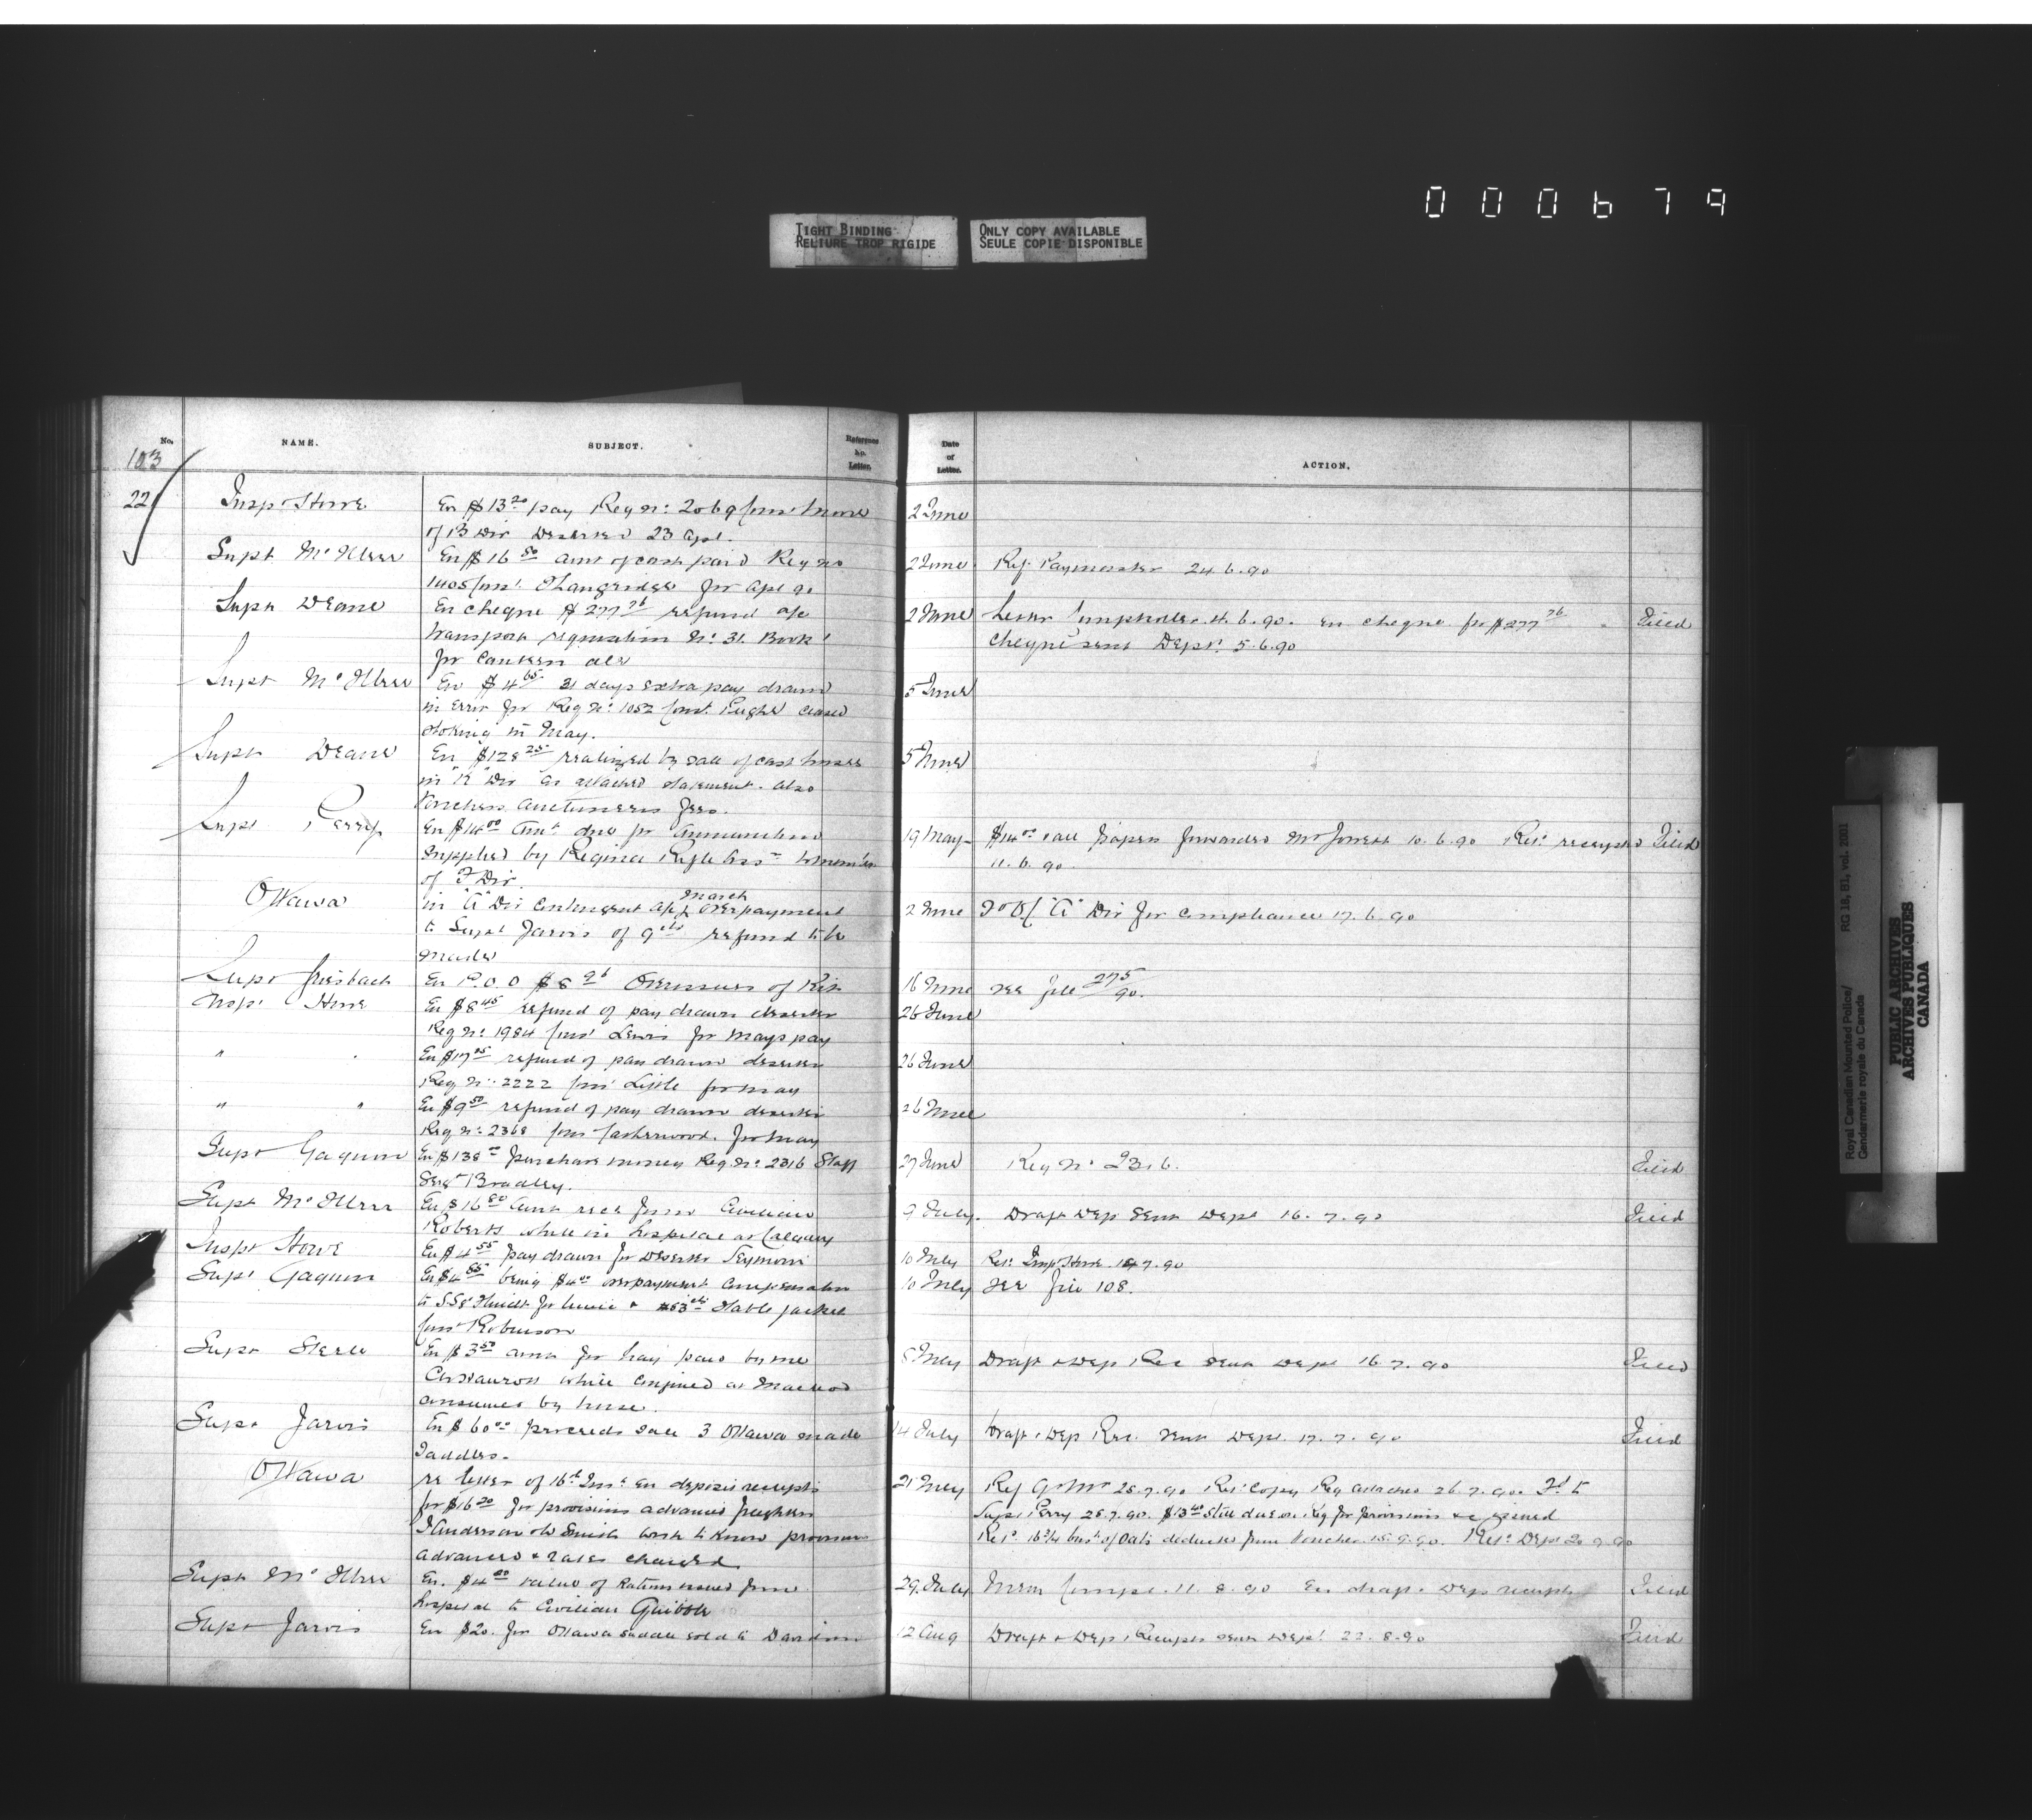 000679
TIGHT BINDING
RELIURE TROP RIGIDE
ONLY COPY AVAILABLE
SEULE COPIE DISPONIBLE
No. NAME. SUBJECT. Reference No. Letter. Date of Letter. ACTION.
103
22 Insp Howe En $13.20 pay Reg No: 2069 Const
of B Div Deserted 23 Apl. 2 June
Supt McIllree En $16.50 amt of cash paid Reg no 2 June Ref. Paymaster 24.6.90
1405 Const. Langridge for Apl 90
Supt Deane En cheque $277.76 refund a/c 2 June Letter Comptroller 4.6.90. En cheque for $277.76 Filed
transport requisition No: 31 Book 1 cheque sent Dept. 5.6.90
for Canteen
Supt McIllree En $4.65 31 days extra pay drawn 5 June
in error for Reg No: 1052 Const. Pugh ceased
in May.
Supt Deane En $128.25 realized by sale of cast horses 5 June
in "K" Div as attached statement. also
Vouchers Auctioneers fees.
Supt Perry En $14.00 Amt due for Ammunition 19 May $14.00 & all papers forwarded Mr 10.6.90 Rec. receipts Filed
supplied by Regina Rifle Assn to 11.6.90
of F Div.
Ottawa in "A" Div Contingent a/c March overpayment 2 June To O/C "A" Div for compliance 17.6.90
to Supt Jarvis of 9cts refund to be
made
Supt Griesbach En P.O.O $8.96 Overissues of Kit 16 June see file 275/90.
Inspt Howe En $8.45 refund of pay drawn deserter 26 June
Reg No: 1984 Const Lewis for Mays pay
" " En $17.05 refund of pay drawn deserter 26 June
Reg No: 2222 Const Little for May
" " En $9.50 refund of pay drawn deserter 26 June
Reg No: 2368 Const for May
Supt Gagnon En $138.00 purchase money Reg. No: 2316 Staff 27 June Reg No 2316. Filed
Sergt Bradley.
Supt McIllree En $16.80 Amt recd from Civilian 9 July. Draft Dep sent Dept 16.7.90 Filed
Roberts while in hospital at Calgary
Inspt Howe En $4.55 pay drawn for Deserter Seymour 10 July Ret. Insp Howe 14.7.90
Supt Gagnon En $4.85 being $4.00 overpayment compensation 10 July see file 108.
to S.Sgt & stable jacket
Const Robinson
Supt Steele En $3.50 amt for hay paid by 8 July Draft & Dep Rec sent Dept 16.7.90 Filed
while confined at Macleod
consumed by horse.
Supt Jarvis En $60.00 proceeds sale 3 Ottawa made 14 July Draft & Dep Rec. sent Dept. 17.7.90 Filed
Saddles.
Ottawa re letter of 16th Inst En deposit receipts 21 July Ref Q.Mr 25.7.90 Ret. Copy Reg attached 26.7.90. Fd to
for $16.20 for provisions advanced freighters Supt Perry 28.7.90. $13.40 still due on Req for provisions &c issued
J Anderson & Smith wish to know provisions Rec. 16 3/4 bus of Oats deducted from Voucher 15.9.90. Ret. Dept 20.9.90
advanced & rates charged
Supt McIllree En. $4.00 value of Rations issued from 29 July Mem Compt. 11.8.90 En draft & Dep receipt Filed
hospital to Civilian
Supt Jarvis En $20. for Ottawa saddle sold to Davidson 12 Aug Draft & Dep Receipts sent Dept. 22.8.90 Filed
Royal Canadian Mounted Police/
Gendarmerie royale du Canada
RG 18, B1, vol. 2001
PUBLIC ARCHIVES
ARCHIVES PUBLIQUES
CANADA